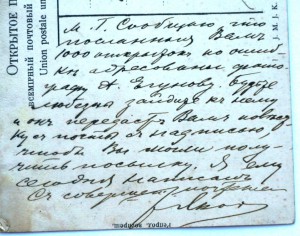 Открытое п
ВСЕМІРНЫЙ ПОЧТОВЫЙ
Union postale un
М. Г. Сообщаю, что
посланныя Вамъ
1000 открытокъ по ошиб-
кѣ адресованы
А. Егунову. Будьте
любезны зайдите къ нему
и онъ передастъ Вамъ повѣст-
ку съ почты съ надписью,
чтобы Вы могли полу-
чить посылку. Я ему
сегодня написалъ
Съ совершен. почтеніем
J.M.K.